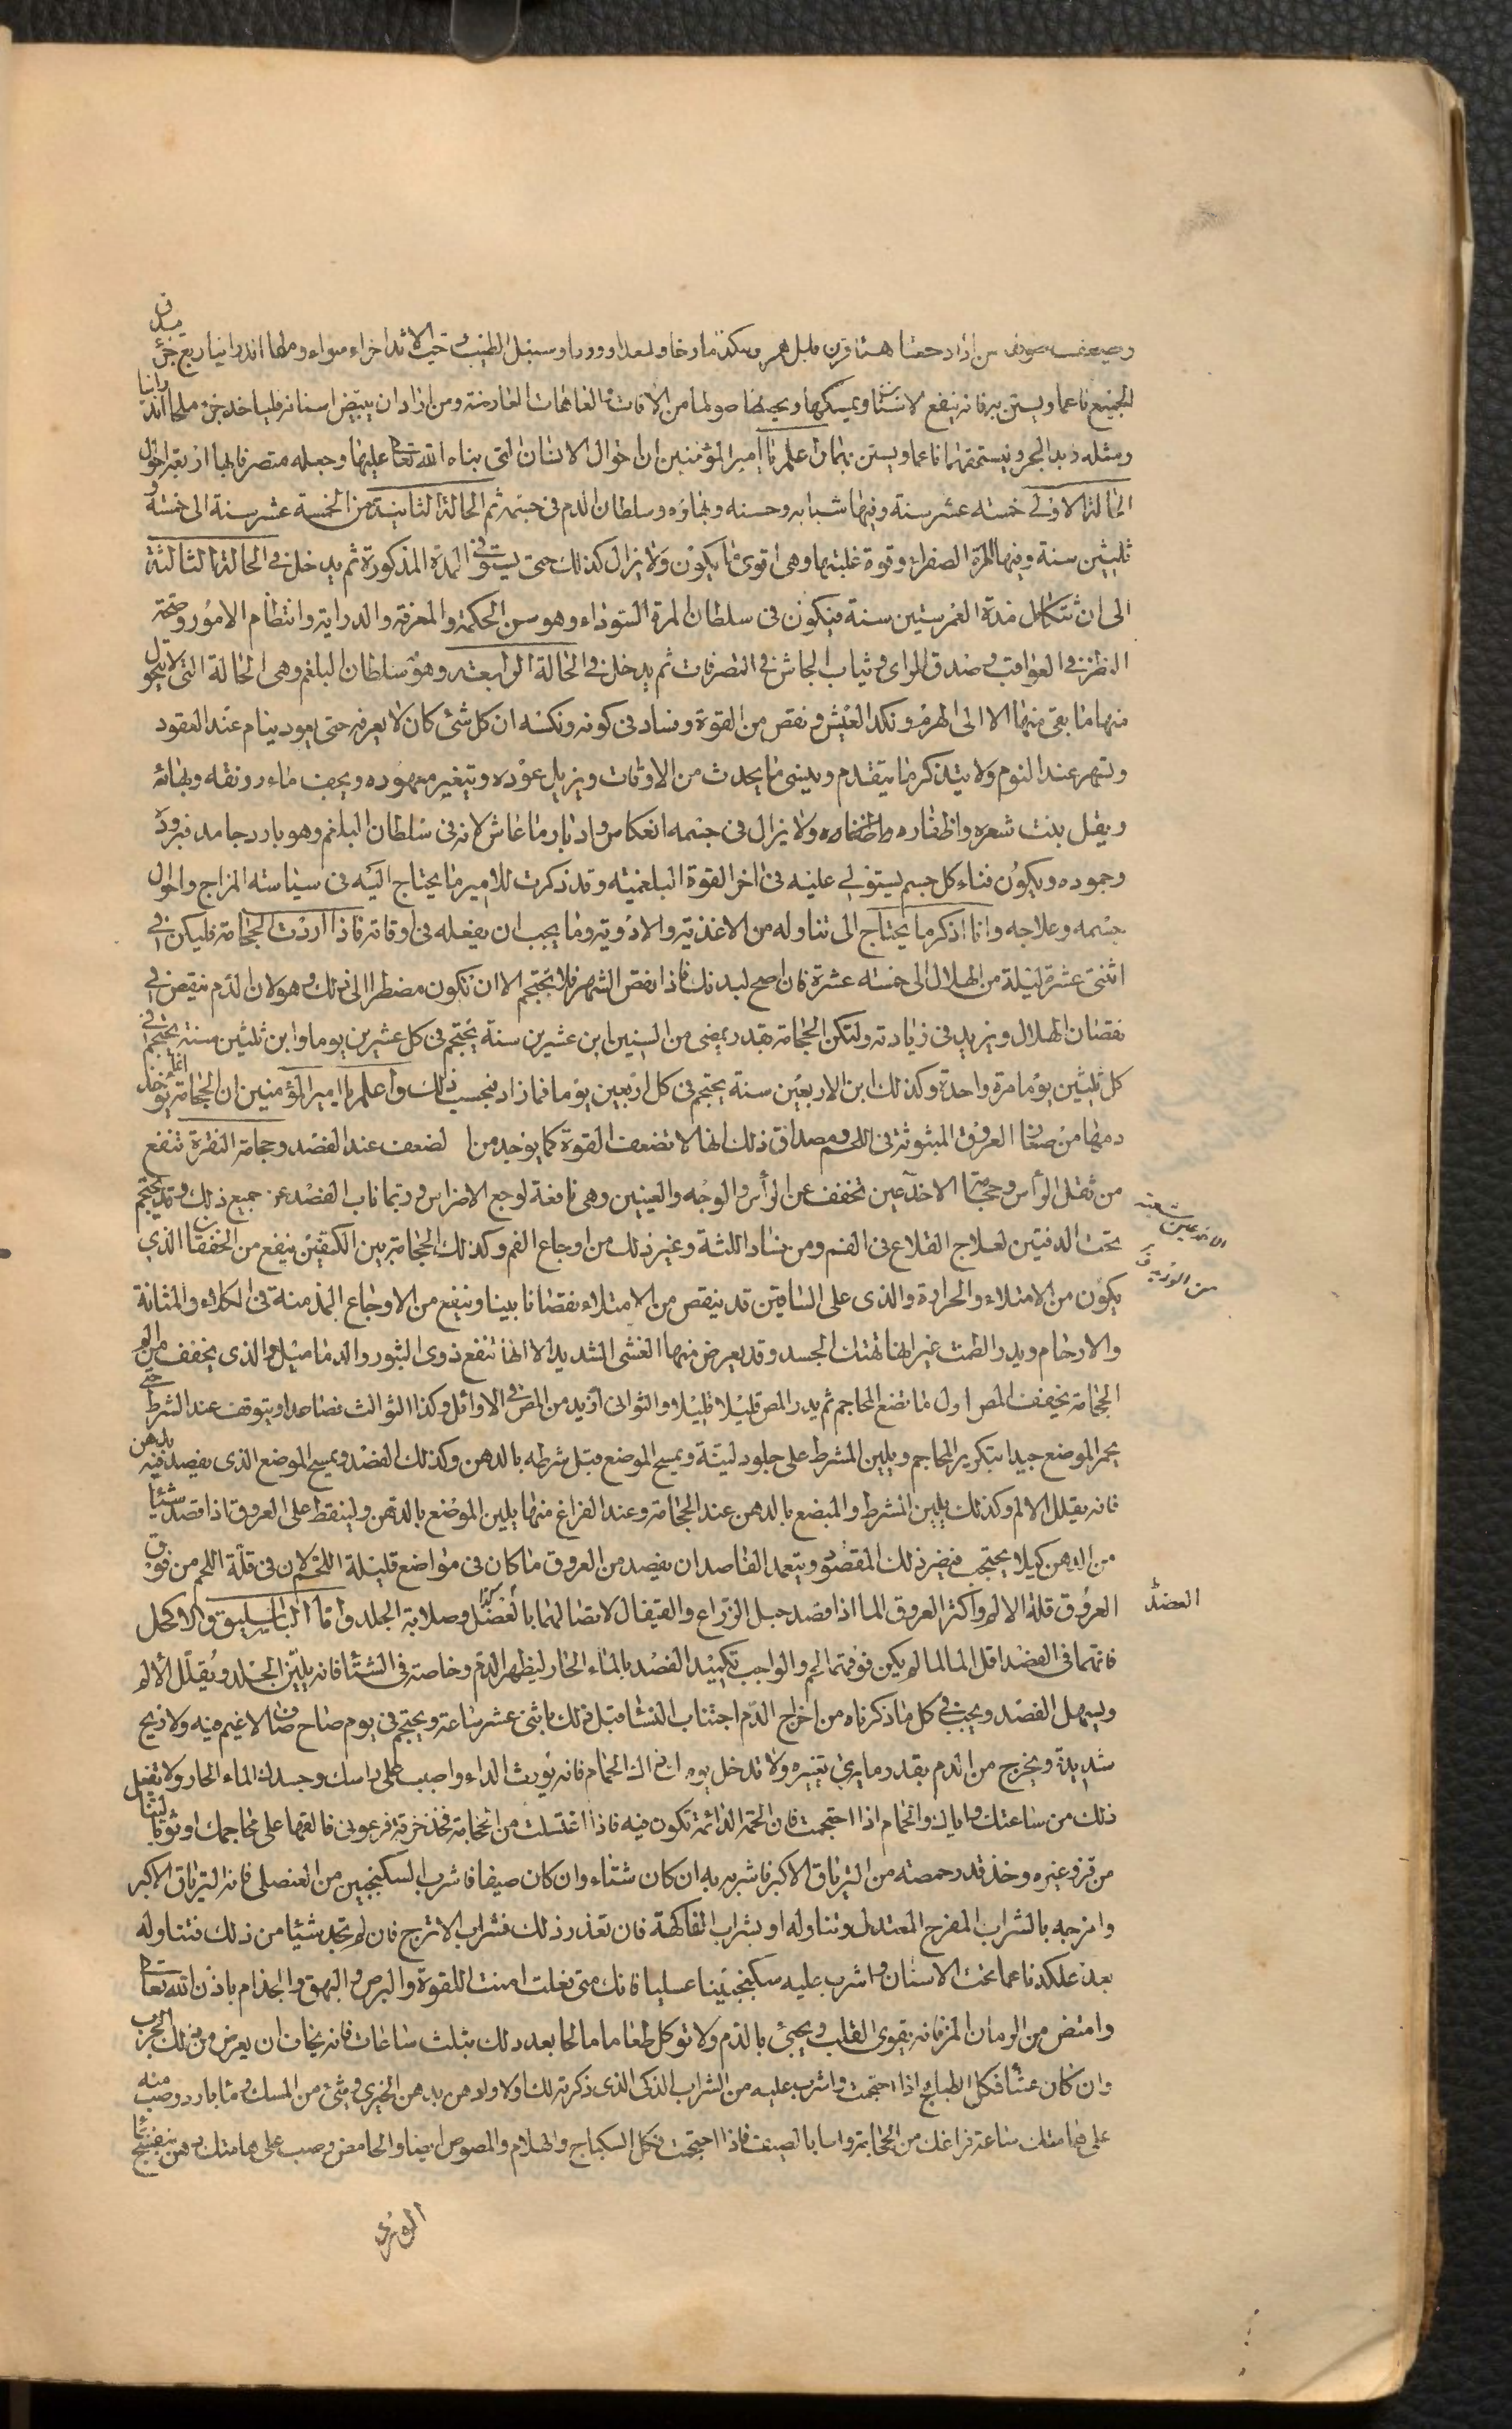 لجميع ناعما ويستن به فانه ينفع الاسنان ويمسكها ويحفظ اصولها من الافات العاهات العارضة ومن اراد ان يبيض اسنانه فلياخذ جزء ملحا اندرانيا
ومثله زبد البحر ويستحقهما ناعما ويستن بهما واعلم يا امير المؤمنين ان احوال الانسان التى بناه الله تعالى عليها وجعله متصرفا بها اربعة احوال
الحالة الاولى خمسة عشر سنة وفيها شبابه وحسنه وبهاؤه وسلطان الدم فى جسمه ثم الحالة الثانية من الخمسة عشر سنة الى خمسة و
ثلثين سنة وفيها المرة الصفراء وقوة غلبتها وهى اقوى ما يكون ولا يزال كذلك حتى يستوفى المدة المذكورة ثم يدخل فى الحالة الثالثة
الى ان تتكامل مدة العمر ستين سنة فيكون فى سلطان المرة السوداء وهو سن الحكمة والمعرفة والدراية وانتظام الامور وصحة
النظر فى العواقب وصدق الراى وثبات الجاش فى التصرفات ثم يدخل فى الحالة الرابعة وهو سلطان البلغم وهى الحالة التى لا يتحول
منها ما بقى منها الا الى الهرم ونكد العيش ونقص من القوة وفساد فى كونه ونكسه ان كل شئ كان لا يعرفه حتى يعود ينام عند القعود
ويسهر عند النوم ولا يتذكر ما يتقدم وينسى ما يحدث من الاوقات ويزيل عوده ويتغير معهوده ويجف ماء رونقه وبهائه
ويقل نبت شعره واظفاره ولا يزال فى جسمه انعكاس وادبار ما عاش لانه فى سلطان البلغم وهو بارد جامد فبروده
وجموده ويكون فناء كل جسم يستولى عليه فى اخر القوة البلغمية وقد ذكرت للامير ما يحتاج اليه فى سياسة المزاج واحوال
جسمه وعلاجه وانا اذكر ما يحتاج الى تناوله من الاغذية والادوية وما يجب ان يفعله فى اوقاته فاذا اردت الحجامة فليكن فى
اثنتى عشرة ليلة من الهلال الى خمسة عشرة فان اصح لبدنك فاذا نقص الشهر فلا تحتجم الا ان تكون مضطرا الى ذلك وهو لان الدم ينقص فى
نقصان الهلال ويزيد فى زيادته ولتكن الحجامة بقدر يمضى من السنين ابن عشرين سنة يحتجم فى كل عشرين يوما وابن ثلثين سنة يحتجم فى
كل ثلثين يوما مرة واحدة وكذلك ابن الاربعين سنة يحتجم فى كل اربعين يوما فما زاد فبحسب ذلك واعلم يا امير المؤمنين ان الحجامة انما يؤخذ
دمها من صغار العروق المبثوثة فى اللحم ومصداق ذلك انها لا تضعف القوة كما يوجد من الضعف عند الفصد وحجامة النقرة تنفع
من ثقل الرأس وحجامة الاخدعين تخفف عن الرأس والوجه والعينين وهى نافعة لوجع الاضراس وربما ناب الفصد عن جميع ذلك وقد يحتجم
تحت الذقن لعلاج القلاع فى الفم ومن فساد اللثة وغير ذلك من اوجاع الفم وكذلك الحجامة بين الكتفين ينفع من الخفقان الذى
يكون من الامتلاء والحرارة والذى على الساقين قد ينقص من الامتلاء نقصانا بينا وينفع من الاوجاع المزمنة فى الكلاء والمثانة
والارحام ويدر الطمث غير انها تهتك الجسد وقد يعرض منها الغشى الشديد الا انها تنفع ذوى البثور والدماميل والذى يخفف من الم
الحجامة تخفيف المص اول ما تضع المحاجم ثم يدر المص قليلا قليلا والثوانى ازيد من المص فى الاوائل وكذا الثوالث فصاعدا ويتوقف عند الشرط حتى
يحمر الموضع جيدا بتكرير المحاجم ويلين المشرط على جلود لينة ويمسح الموضع قبل شرطه بالدهن وكذلك الفصد ويمسح الموضع الذى يفصد فيه بدهن
فانه يقلل الالم وكذلك يلين المشرط والمبضع بالدهن عند الحجامة وعند الفراغ منها يلين الموضع بالدهن ولينقط على العروق اذا فصد شيئا
من الدهن كيلا يحتجب فيضر ذلك المقصود ويتعمد الفاصد ان يفصد من العروق ما كان فى مواضع قليلة اللحم لان فى قلة اللحم من فوق
العروق قلة الالم واكثر العروق الما اذا فصد حبل الذراع والقيفال لاتصالهما بالعضل وصلابة الجلد واما الباسليق والاكحل
فانهما فى الفصد اقل الما لما لم يكن فوقهما لحم والواجب تكميد الفصد بالماء الحار ليظهر الدم وخاصة فى الشتا فانه يلين الجلد ويقلل الالم
ويسهل الفصد ويجب فى كل ما ذكرناه من اخراج الدم اجتناب النسا قبل ذلك باثنى عشر ساعة ويحتجم فى يوم صاح صاف لا غيم فيه ولا ريح
شديدة ويخرج من الدم بقدر ما يرى تغيره ولا تدخل يومك ذلك الحمام فانه يورث الداء واصبب على راسك وجسدك الماء الحار ولا تفعل
ذلك من ساعتك واياك والحمام اذا احتجمت فان الحمى الدائمة تكون فيه فاذا اغتسلت من الحجامة فخذ خرقة مرعوبى فالقها على محاجمك او ثوبا لينا
من قز وغيره وخذ قدر حمصة من الترياق الاكبر فاشربه به ان كان شتاء وان كان صيفا فاشرب السكنجبين من العنصلى فانه الترياق الاكبر
وامزجه بالشراب المفرح المعتدل وتناوله او بشراب الفاكهة فان تعذر ذلك فشراب الاترج فان لم تجد شيئا من ذلك فتناوله
بعد علكه ناعما تحت الاسنان واشرب عليه سكنجبينا عسليا فانك متى فعلت امنت اللقوة والبرص والبهق والجذام باذن الله تعالى
وامتص من الرمان المز فانه يقوى القلب ويحيى بالدم ولا تؤكل طعاما مالحا بعد ذلك بثلث ساعات فانه يخاف ان يعرض من ذلك الجرب
وان كان شتأ فكل الطياهج اذا احتجمت واشرب عليه من الشراب الذكى الذى ذكرته لك اولا وادهن بدهن الخيرى وشئ من المسك وما بارد وصب منه
على هامتك ساعة فراغك من الحجامة واما بالصيف فاذا احتجمت فكل السكباج والهلام والمصوص ايضا والحامض وصب على هامتك دهن بنفسج بما
العضد
الورد